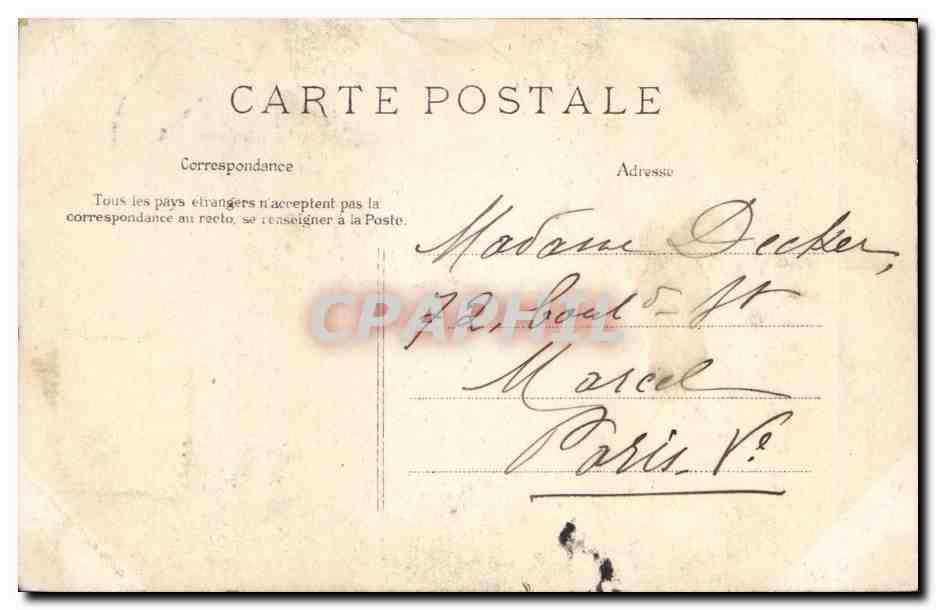 CARTE POSTALE
Correspondance
Tous les pays étrangers n'acceptent pas la
correspondance au recto, se renseigner à la Poste.
Adresse
Madame Decker,
72, Boul^d St
Marcel
Paris. V^e
CPAPHIL